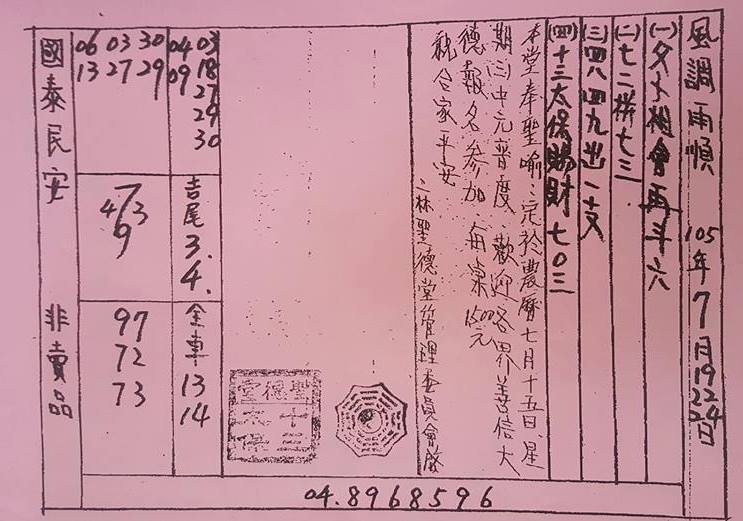 風調雨順 105年7月19 22 24日
(一)夕卜機會再斗六
(二)七二拼七三
(三)四八四九出二支
(四)十三太保賜財七0三
本堂奉聖喻.定於農曆七月十五日.星
期三中元普度.歡迎各界善信大
德報名參加.每棕1500元
祝合家平安
二林聖德堂管理委員會啓
聖德堂
十三
太保
04 03
09 18
27
29
30
吉尾
3.
4.
金車
13
14
06 03 30
13 27 29
7
4 3
9
97
72
73
國泰民安 非賣品
04.8968596